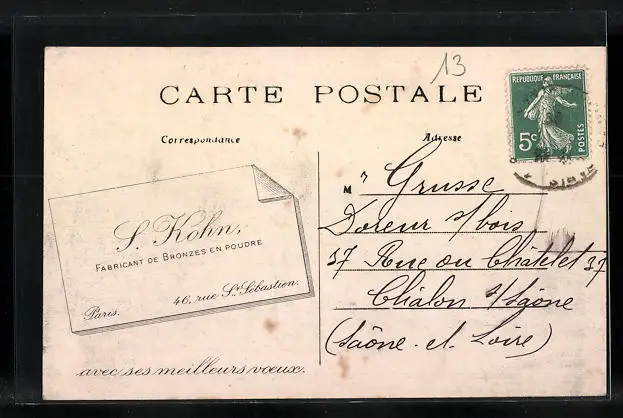 13
CARTE POSTALE
RÉPUBLIQUE FRANÇAISE
5c
POSTES
Correspondance
Adresse
S. Kohn,
FABRICANT DE BRONZES EN POUDRE
46, rue St Sébastien.
Paris.
avec ses meilleurs vœux.
M r Grusse
Doreur s/bois
37 Rue du Châtelet 37
Châlon s/Saône
(Saône et Loire)